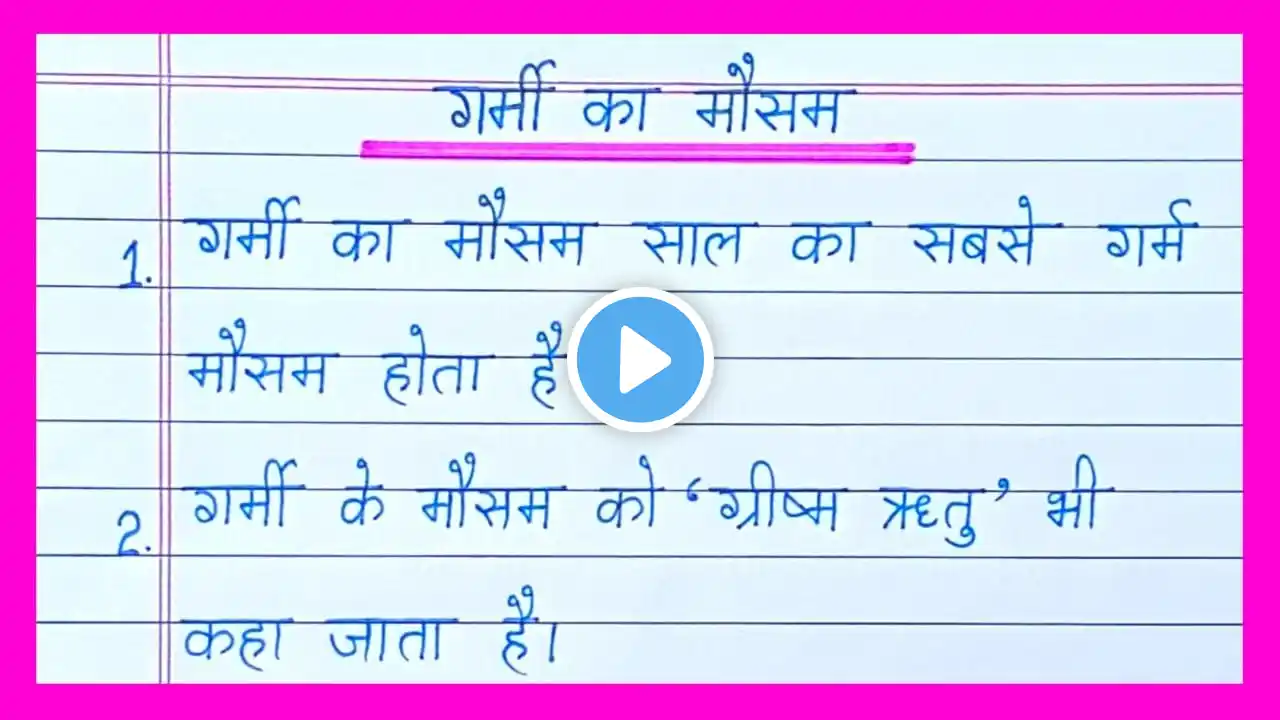 गर्मी का मौसम
1. गर्मी का मौसम साल का सबसे गर्म
मौसम होता है
2. गर्मी के मौसम को ‘ग्रीष्म ऋतु’ भी
कहा जाता है।